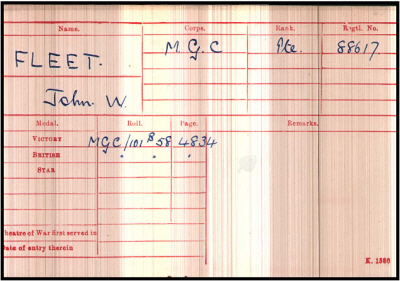 Name. Corps. Rank. Regtl. No.
FLEET. M.G.C Pte. 88617
John. W.
Medal. Roll. Page. Remarks.
VICTORY MGC/101 B 58 4834
BRITISH " " "
STAR
Theatre of War first served in
Date of entry therein
K. 1380